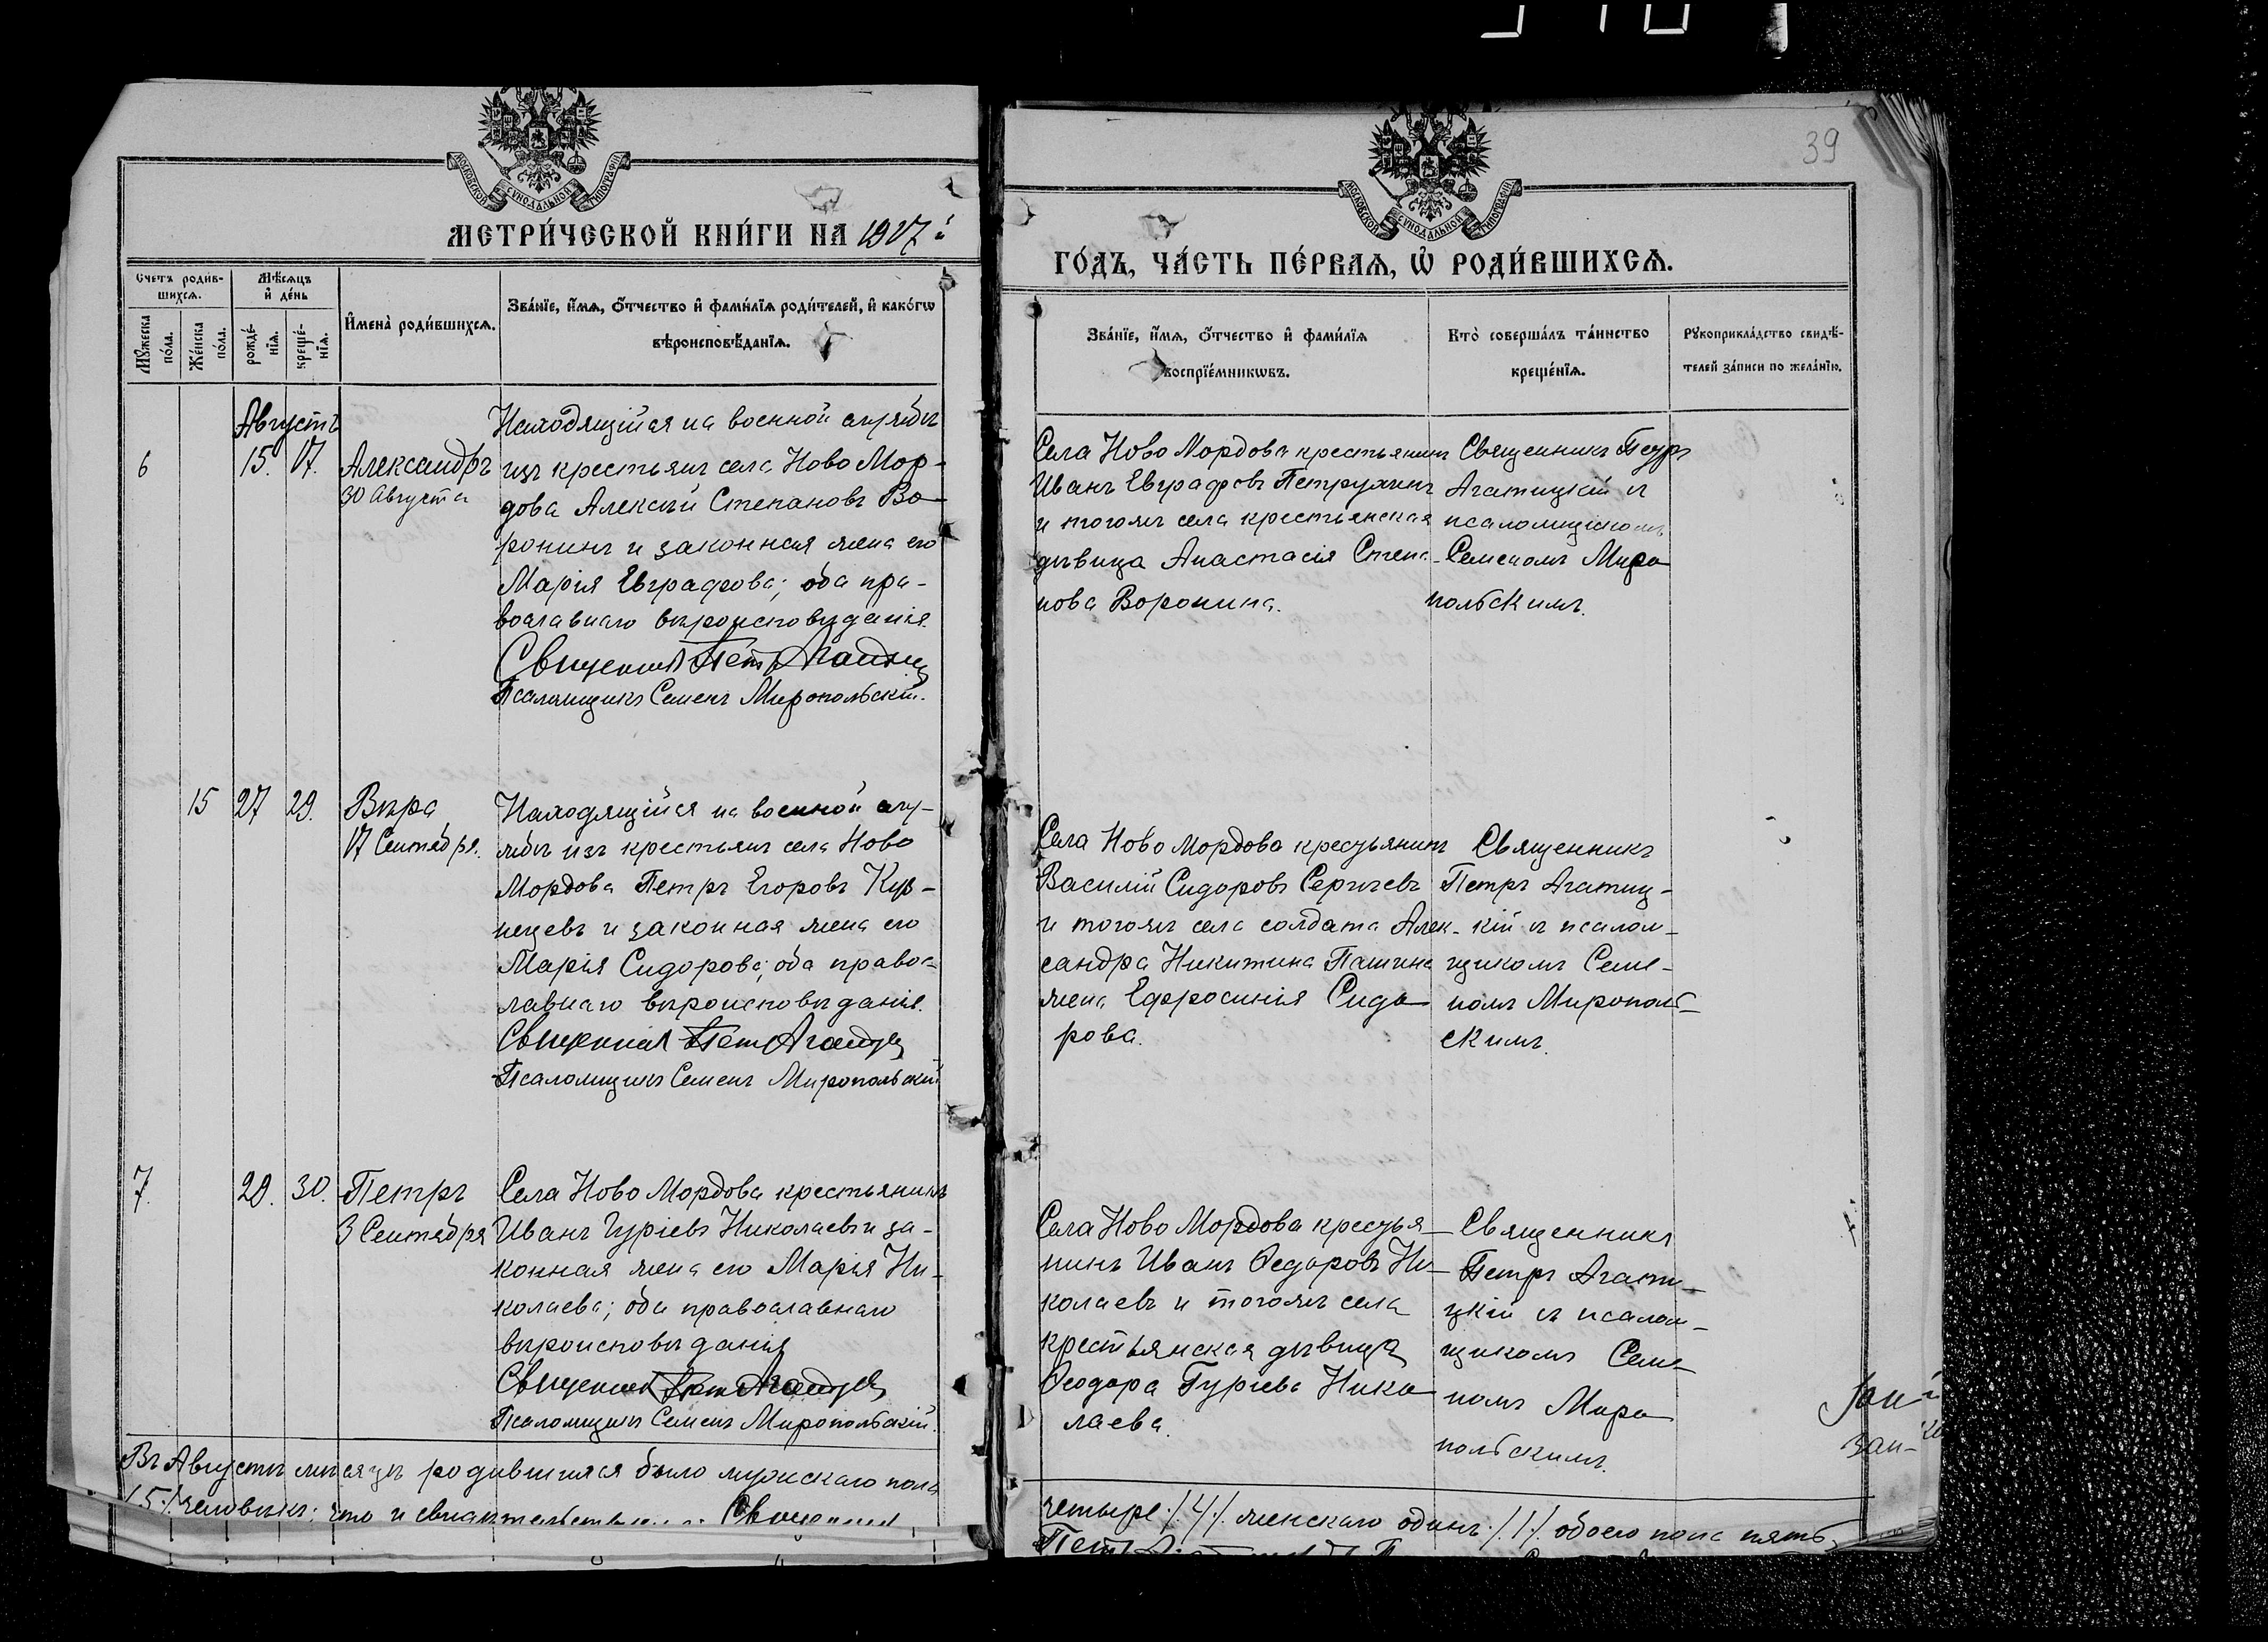 МОСКОВСКОЙ СѴНОДАЛЬНОЙ ТИПОГРАФІИ
МЕТРИ́ЧЕСКОЙ КНИ́ГИ НА 1917й
Счетъ роди́в-
шихсѧ.
Мѣ́сѧцъ
и҆ де́нь
И҆мена̀ роди́вшихсѧ.
Зва́нїе, и҆́мѧ, ѻ҆́тчество и҆ фами́лїѧ роди́телей, и҆ како́гѡ
вѣроисповѣ́данїѧ.
Мꙋ́жеска
по́ла.
Же́нска
по́ла.
рожде́-
нїѧ.
креще́-
нїѧ.
Августъ
6
15. 17.
Александръ
30 Августа
Находящійся на военной службѣ
изъ крестьянъ села Ново Мор-
дова Алексѣй Степановъ Во-
ронинъ и законная жена его
Марія Евграфова; оба пра-
вославнаго вѣроисповѣданія.
Священникъ Петръ Агатицкій
Псаломщикъ Семенъ Миропольскій.
15 27 29.
Вѣра
17 Сентября.
Находящійся на военной слу-
жбѣ изъ крестьянъ села Ново
Мордова Петръ Егоровъ Куз-
нецевъ и законная жена его
Марія Сидорова; оба правос-
лавнаго вѣроисповѣданія.
Священникъ Петръ Агатицкій
Псаломщикъ Семенъ Миропольскій
7. 29. 30.
Петръ
3 Сентября
Села Ново Мордова крестьянинъ
Иванъ Гуріевъ Николаевъ и за-
конная жена его Марія Ни-
колаева; оба православнаго
вѣроисповѣданія
Священникъ Петръ Агатицкій
Псаломщикъ Семенъ Миропольскій.
Въ Августѣ мѣсяцѣ родившихся было мужскаго пола
/.5./ человѣкъ; что и свидѣтельствуемъ Священникъ
39
МОСКОВСКОЙ СѴНОДАЛЬНОЙ ТИПОГРАФІИ
ГО́ДЪ, ЧА́СТЬ ПЕ́РВАѦ, Ѡ҆ РОДИ́ВШИХСѦ.
Зва́нїе, и҆́мѧ, ѻ҆́тчество и҆ фами́лїѧ
воспрїе́мникѡвъ.
Кто̀ соверша́лъ та́инство
креще́нїѧ.
Рꙋкоприкла́дство свидѣ́-
телей за́писи по жела́нїю.
Села Ново Мордова крестьянинъ
Иванъ Евграфовъ Петрухинъ
и тогожъ села крестьянская
дѣвица Анастасія Степа-
нова Воронина.
Священникъ Петръ
Агатицкій съ
псаломщикомъ
Семеномъ Миро-
польскимъ.
Села Ново Мордова крестьянинъ
Василій Сидоровъ Сергчевъ
и тогожъ села солдата Алек-
сандра Никитина Пашина
жена Ефросинія Сидо-
рова.
Священникъ
Петръ Агатиц-
кій съ псалом-
щикомъ Семе-
номъ Мирополь-
скимъ.
Села Ново Мордова крестья-
нинъ Иванъ Ѳедоровъ Ни-
колаевъ и тогожъ села
крестьянская дѣвица
Ѳеодора Гуріева Нико-
лаева.
Священникъ
Петръ Агати-
цкій съ псалом-
щикомъ Семе-
номъ Миро-
польскимъ.
четыре /.4./. женскаго одинъ /.1./. обоего пола пять